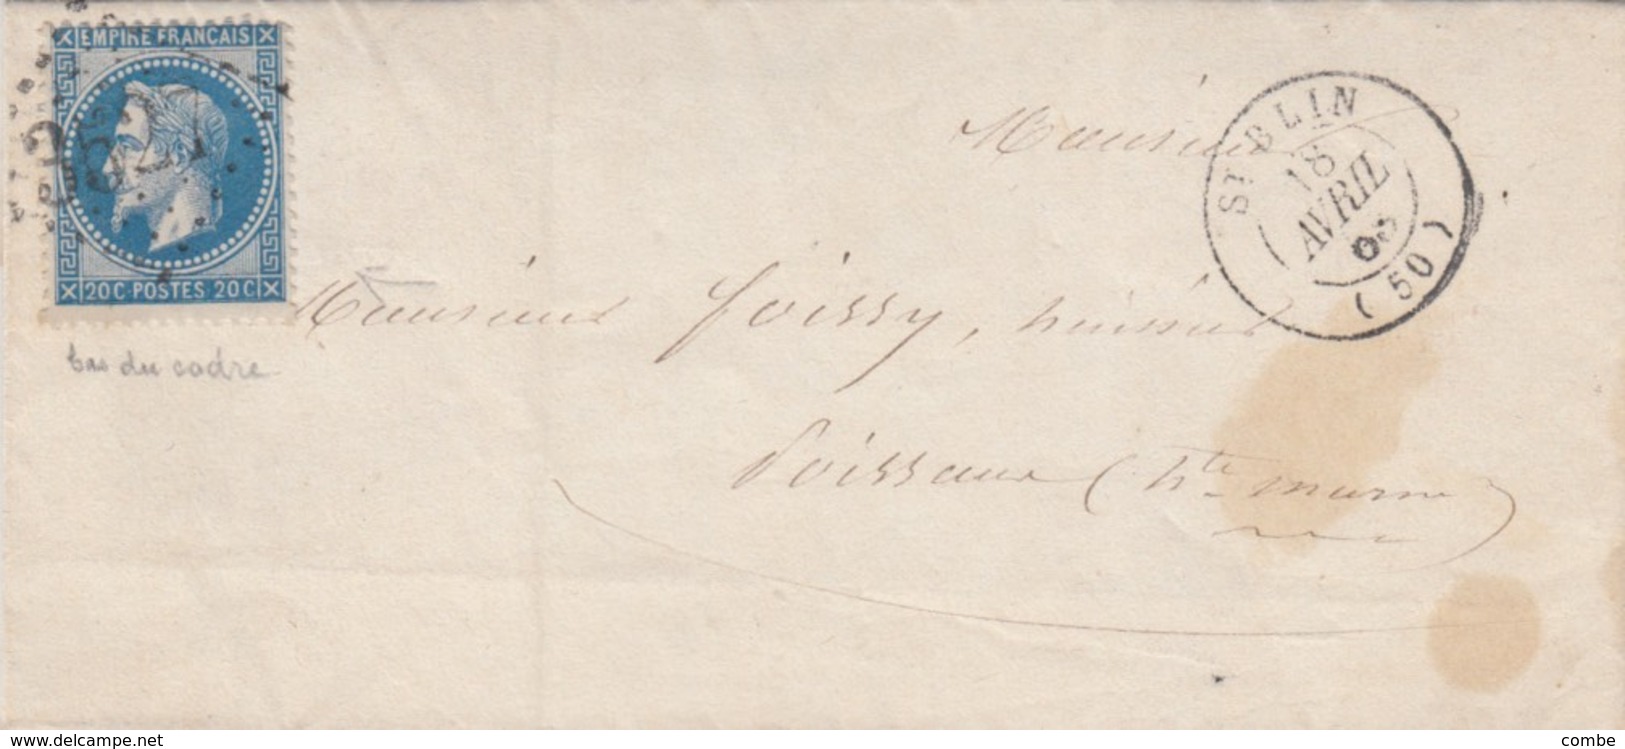 EMPIRE FRANÇAIS
20C·POSTES 20C
bas du cadre
ST BLIN
18
AVRIL
(50)
Monsieur
Monsieur Foissy, huissier
Poissons (hte marne)
www.delcampe.net
combe